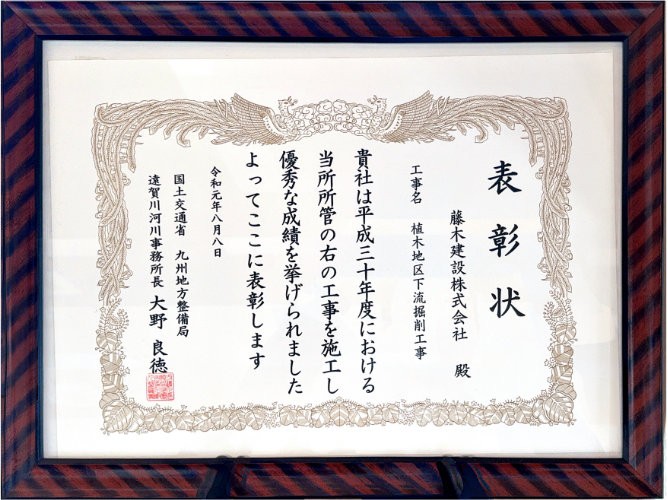 表彰状
藤木建設株式会社 殿
工事名 植木地区下流掘削工事
貴社は平成三十年度における
当所所管の右の工事を施工し
優秀な成績を挙げられました
よってここに表彰します
令和元年八月八日
国土交通省 九州地方整備局
遠賀川河川事務所長 大野良徳